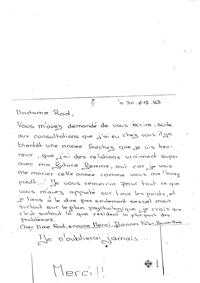 le 30.12.83
Madame Rod,
Vous m'avez demandé de vous écrire, suite
aux consultations que j'ai eu chez vous il y a
bientôt une année. Sachez que je vis heu-
reux, que j'ai des relations vraiment super
avec ma future femme, oui car je vais
me marier cette année comme vous me l'aviez
prédit..." Je vous remercie pour tout ce que
vous m'avez apporté sur tous les points, et
je tiens à le dire pas seulement sexuel mais
surtout sur le plan psychologique, je crois que
c'est surtout là que résident la plus part des
problèmes.
Chère Mme Rod, encore Merci,
"Je n'oublierai jamais...
Merci!!